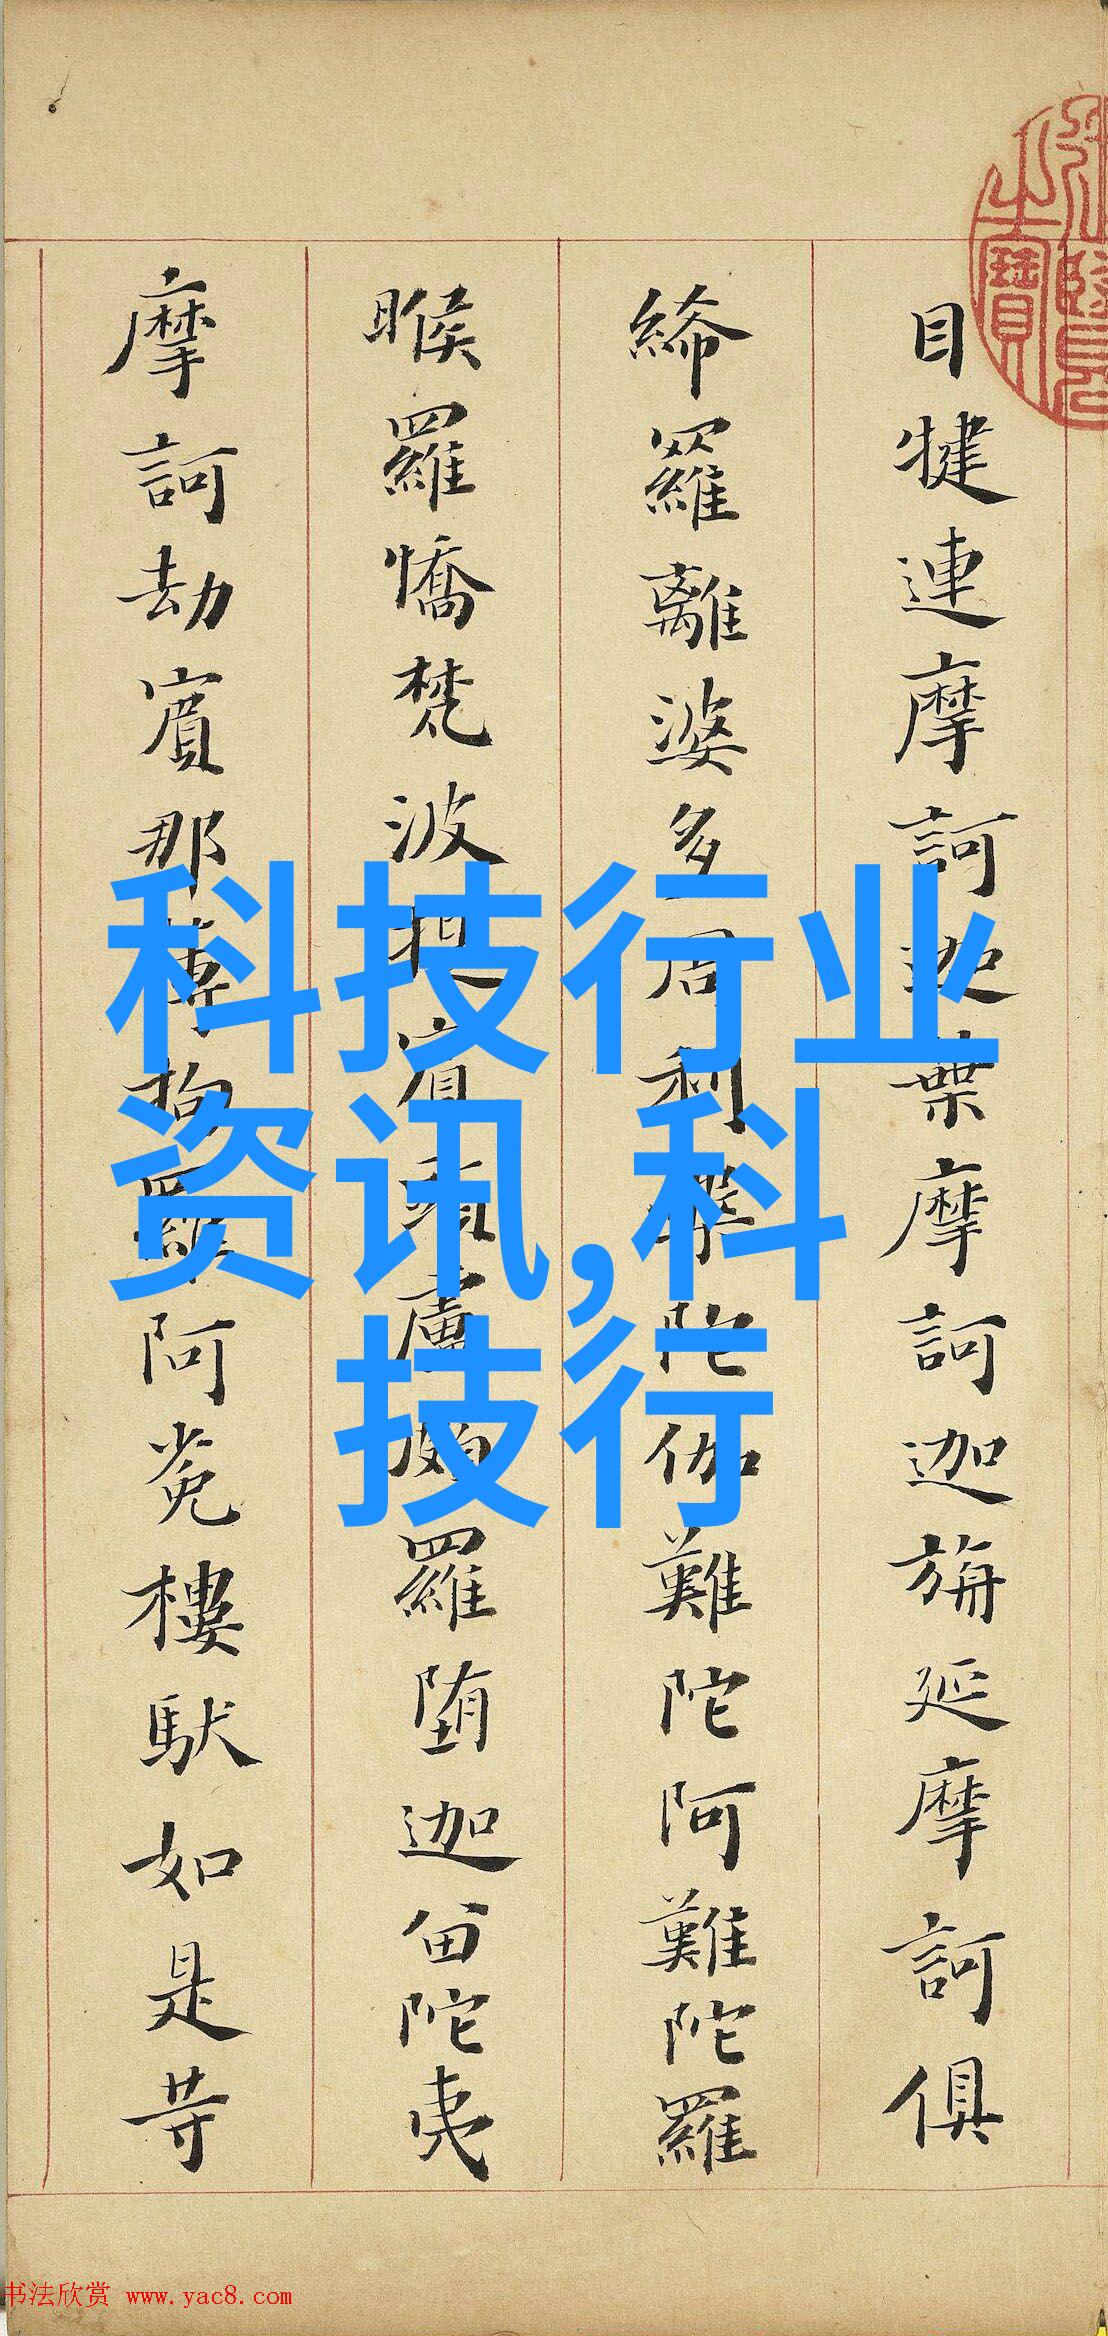 目犍連摩訶迦葉摩訶迦旃延摩訶俱
絺羅離婆多周利槃陀伽難陀阿難陀羅
睺羅憍梵波提賓頭盧頗羅堕迦留陀夷
摩訶劫賓那薄拘羅阿㝹樓馱如是等
科技行业
资讯,科
技行
书法欣赏 www.yac8.com